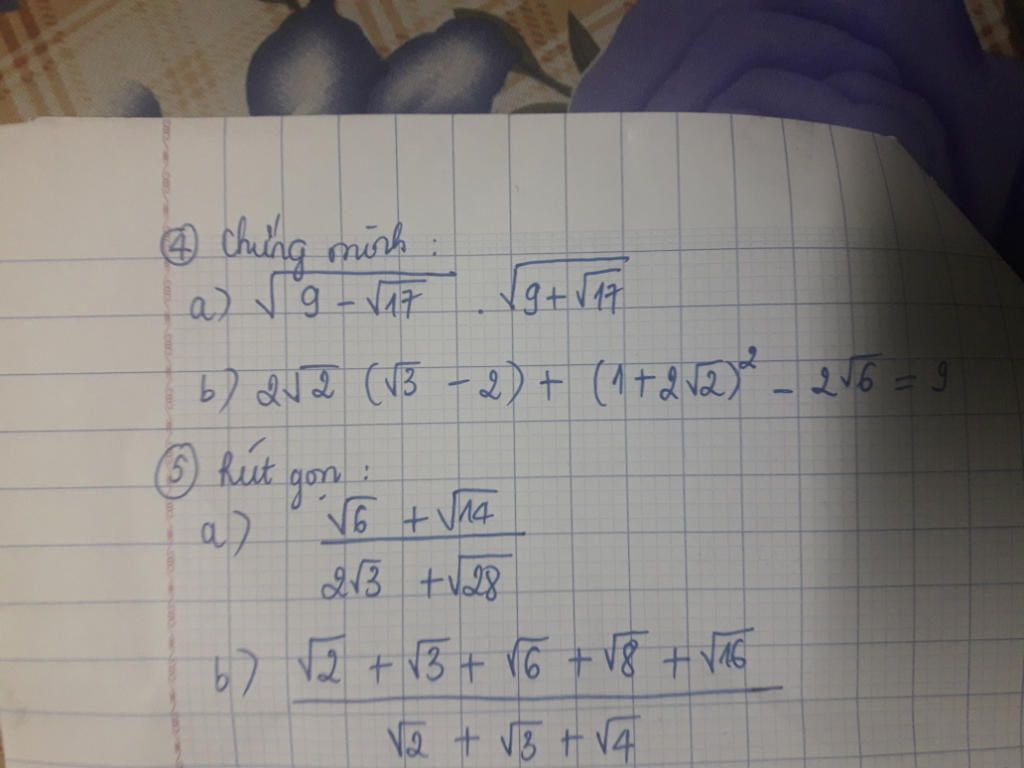 ④ Chứng minh :
a) √(9 - √17) . √(9 + √17)
b) 2√2 (√3 - 2) + (1 + 2√2)² - 2√6 = 9
⑤ Rút gọn :
a) (√6 + √14) / (2√3 + √28)
b) (√2 + √3 + √6 + √8 + √16) / (√2 + √3 + √4)